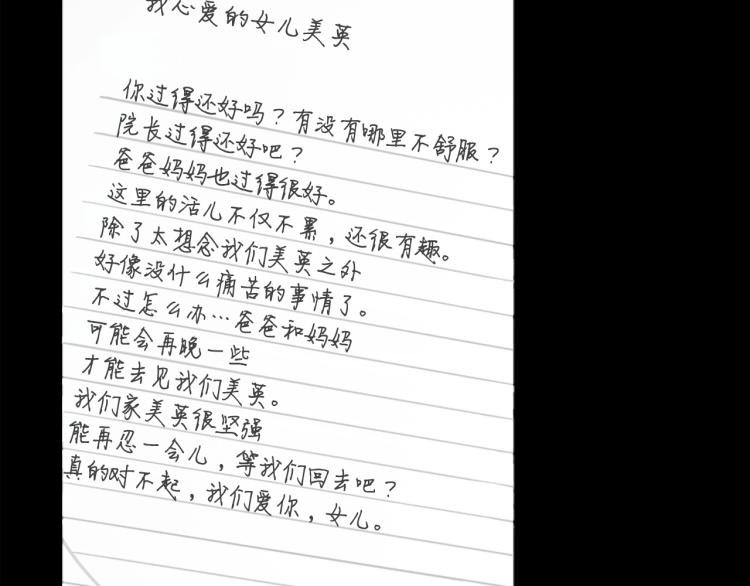 我心爱的女儿美英
你过得还好吗？有没有哪里不舒服？
院长过得还好吧？
爸爸妈妈也过得很好。
这里的活儿不仅不累，还很有趣。
除了太想念我们美英之外
好像没什么痛苦的事情了。
不过怎么办…爸爸和妈妈
可能会再晚一些
才能去见我们美英。
我们家美英很坚强
能再忍一会儿，等我们回去吧？
真的对不起，我们爱你，女儿。